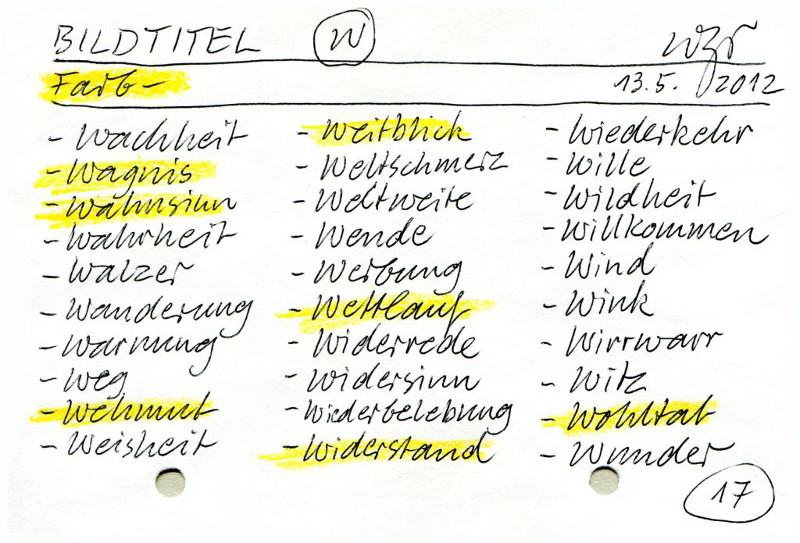 BILDTITEL W wzr
Farb- 13.5. 2012
- Wachheit
- Wagnis
- Wahnsinn
- Wahrheit
- Walzer
- Wanderung
- Warnung
- Weg
- Wehmut
- Weisheit
- Weitblick
- Weltschmerz
- Weltweite
- Wende
- Werbung
- Wettlauf
- Widerrede
- Widersinn
- Wiederbelebung
- Widerstand
- Wiederkehr
- Wille
- Wildheit
- Willkommen
- Wind
- Wink
- Wirrwarr
- Witz
- Wohltat
- Wunder
17